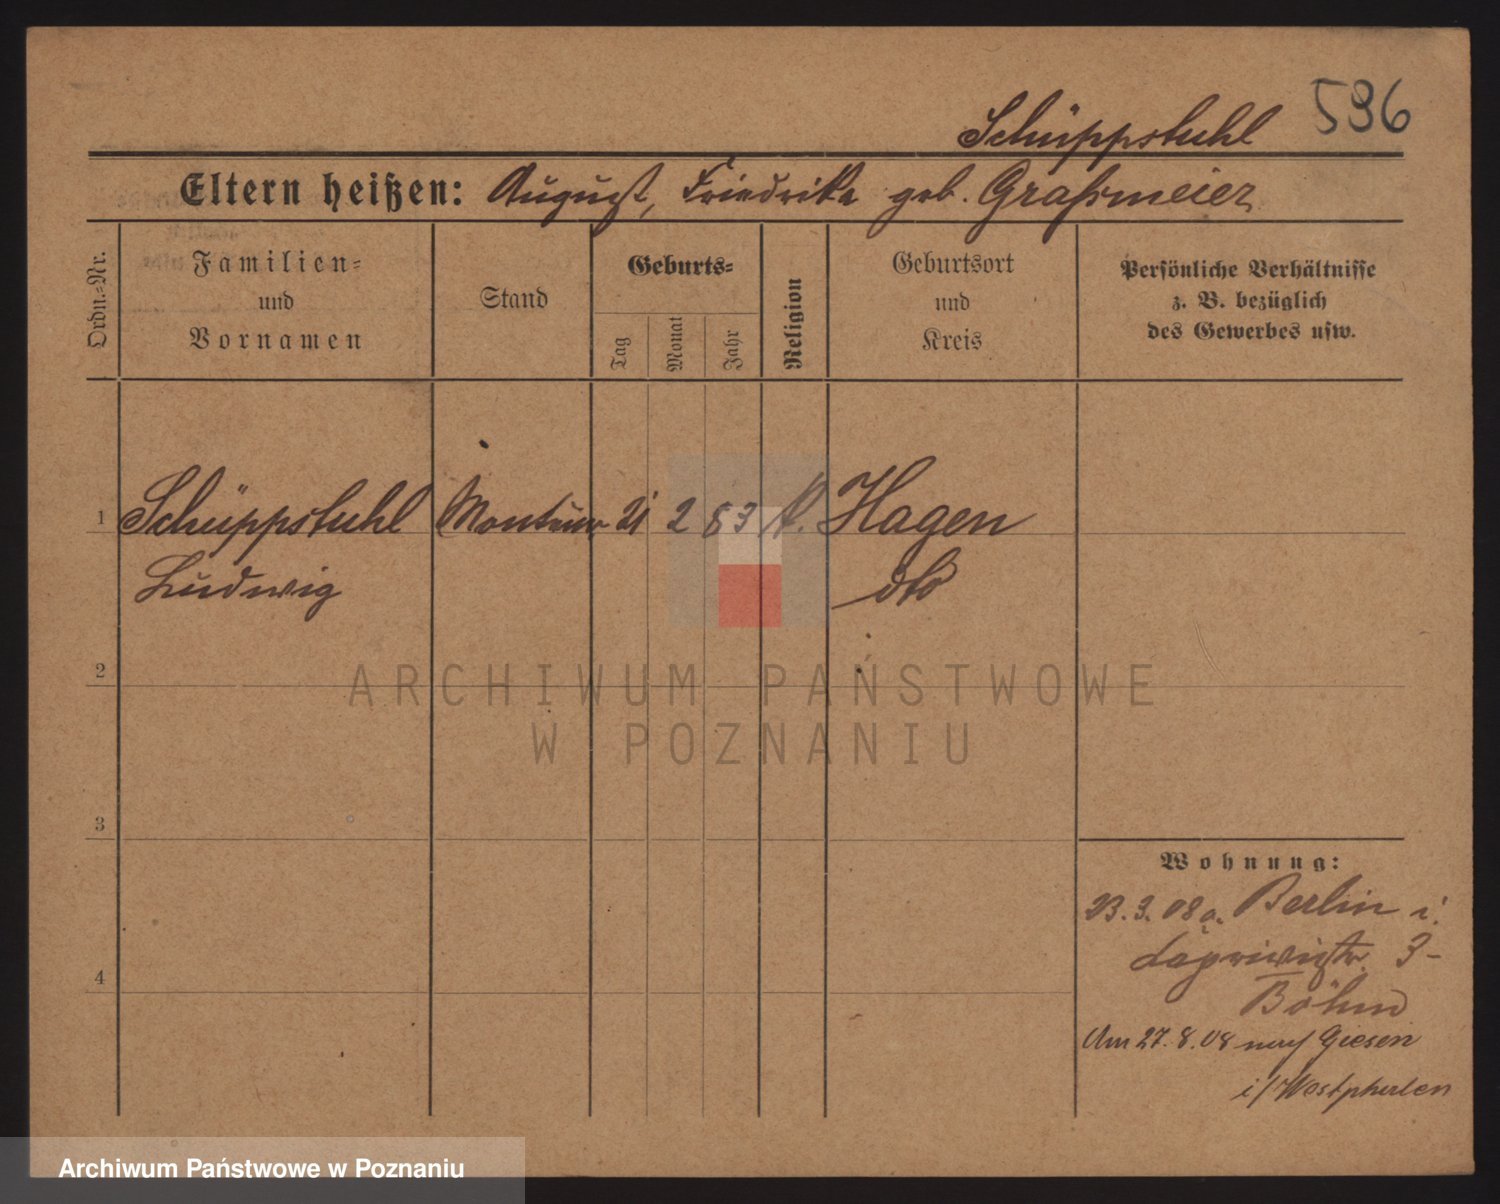 596
Schüppstuhl
Eltern heißen: August, Friedrika geb. Graßmeier
Ordn.-Nr.
Familien-
und
Vornamen
Stand
Geburts-
Tag
Monat
Jahr
Religion
Geburtsort
und
Kreis
Persönliche Verhältnisse
z. B. bezüglich
des Gewerbes usw.
1 Schüppstuhl Monteur 21 2 83 k. Hagen
Ludwig dto
2
3
4
Wohnung:
23.3.08 a. Berlin i.
3-
Böhm
Um 27.8.08 nach Giesen
i/Westphalen
ARCHIWUM PAŃSTWOWE
W POZNANIU
Archiwum Państwowe w Poznaniu